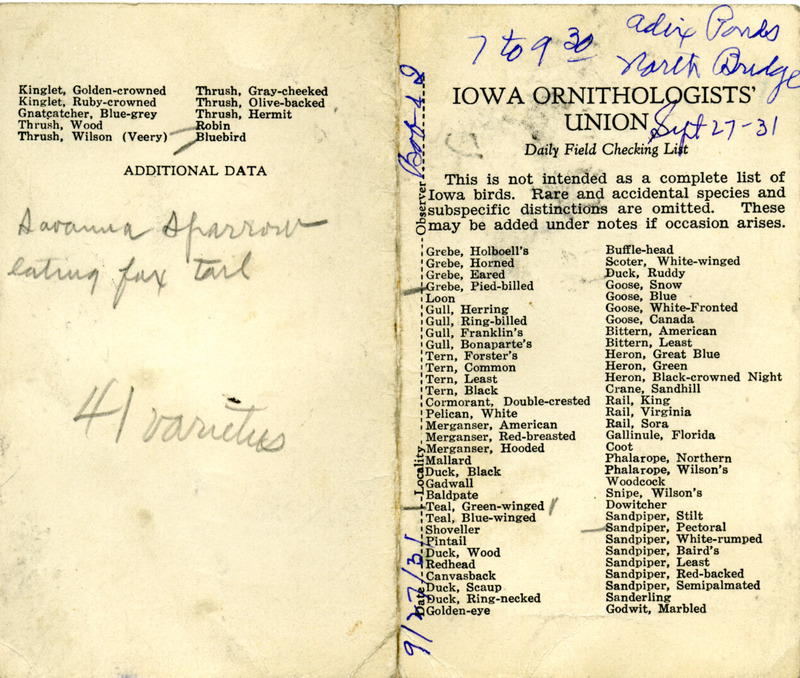 Kinglet, Golden-crowned
Kinglet, Ruby-crowned
Gnatcatcher, Blue-grey
Thrush, Wood
Thrush, Wilson (Veery)
Thrush, Gray-cheeked
Thrush, Olive-backed
Thrush, Hermit
Robin
Bluebird
ADDITIONAL DATA
Savanna Sparrow
eating fox tail
41 varieties
7 to 9 30
Adix Ponds
North Bridge
IOWA ORNITHOLOGISTS'
UNION
Sept 27-31
Daily Field Checking List
This is not intended as a complete list of
Iowa birds. Rare and accidental species and
subspecific distinctions are omitted. These
may be added under notes if occasion arises.
Grebe, Holboell's
Grebe, Horned
Grebe, Eared
Grebe, Pied-billed
Loon
Gull, Herring
Gull, Ring-billed
Gull, Franklin's
Gull, Bonaparte's
Tern, Forster's
Tern, Common
Tern, Least
Tern, Black
Cormorant, Double-crested
Pelican, White
Merganser, American
Merganser, Red-breasted
Merganser, Hooded
Mallard
Duck, Black
Gadwall
Baldpate
Teal, Green-winged
Teal, Blue-winged
Shoveller
Pintail
Duck, Wood
Redhead
Canvasback
Duck, Scaup
Duck, Ring-necked
Golden-eye
Buffle-head
Scoter, White-winged
Duck, Ruddy
Goose, Snow
Goose, Blue
Goose, White-Fronted
Goose, Canada
Bittern, American
Bittern, Least
Heron, Great Blue
Heron, Green
Heron, Black-crowned Night
Crane, Sandhill
Rail, King
Rail, Virginia
Rail, Sora
Gallinule, Florida
Coot
Phalarope, Northern
Phalarope, Wilson's
Woodcock
Snipe, Wilson's
Dowitcher
Sandpiper, Stilt
Sandpiper, Pectoral
Sandpiper, White-rumped
Sandpiper, Baird's
Sandpiper, Least
Sandpiper, Red-backed
Sandpiper, Semipalmated
Sanderling
Godwit, Marbled
Date 9/27/31 Locality Observer